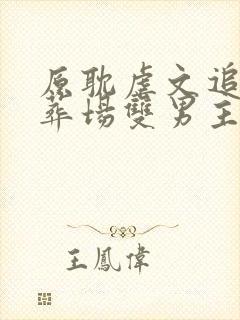 原耽虐文追
葬場雙男主
王鳳偉